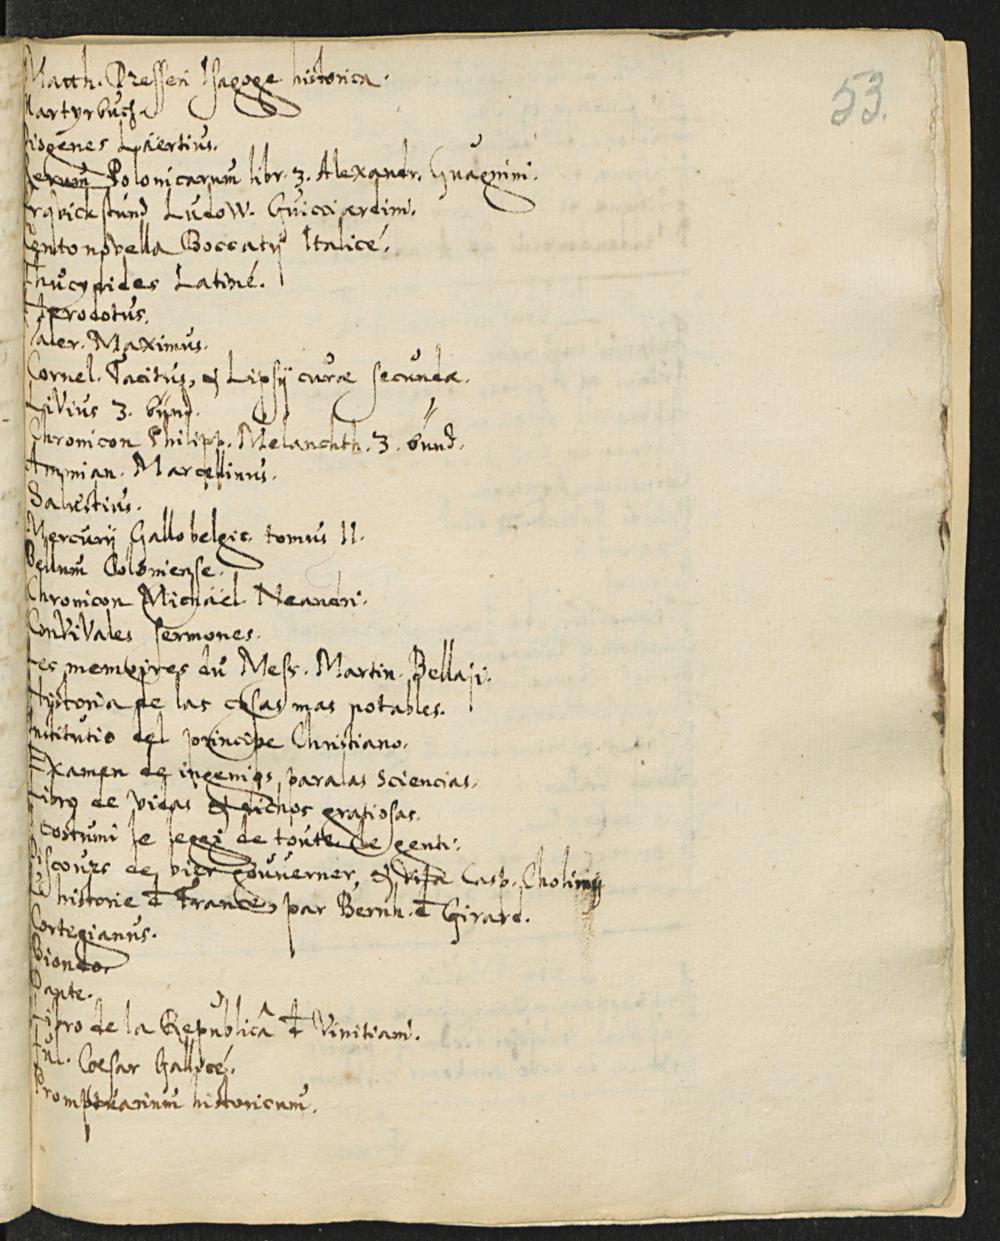 53.
Matth. Dresseri Isagoge historica.
Martyrbuch
Diogenes Laërtius.
Rerum Polonicarum libr. 3. Alexandr. Guagnini.
Erquickstund Ludow. Guicciardini.
Centonovella Boccatij Italicé.
Thucydides Latiné.
Herodotus.
Valer. Maximus.
Cornel. Tacitus, et Lipsij curae secundae.
Livius 3. bünd.
Chronicon Philipp. Melanchth. 3. bünd.
Ammian. Marcellinus.
Salustius.
Mercurij Gallobelgic. tomus II.
Bellum Coloniense.
Chronicon Michaël. Neandri.
Convivales sermones.
Les memoires du Mess. Martin. Bellaji.
Historia de las cosas mas notables.
Institutio del principe Christiano.
Examen de ingenios para las sciencias.
Libro de vidas et dichos gratiosas.
Costumi le leggi de toute le genti.
Discours de gouverner, et vita Casp. Cholinij
historie de France, par Bernh. de Girard.
Cortegianus.
Biondo.
Dante.
Libro de la Republica de Vinitiani.
Jul. Caesar Gallicé.
Promptuarium historicum.